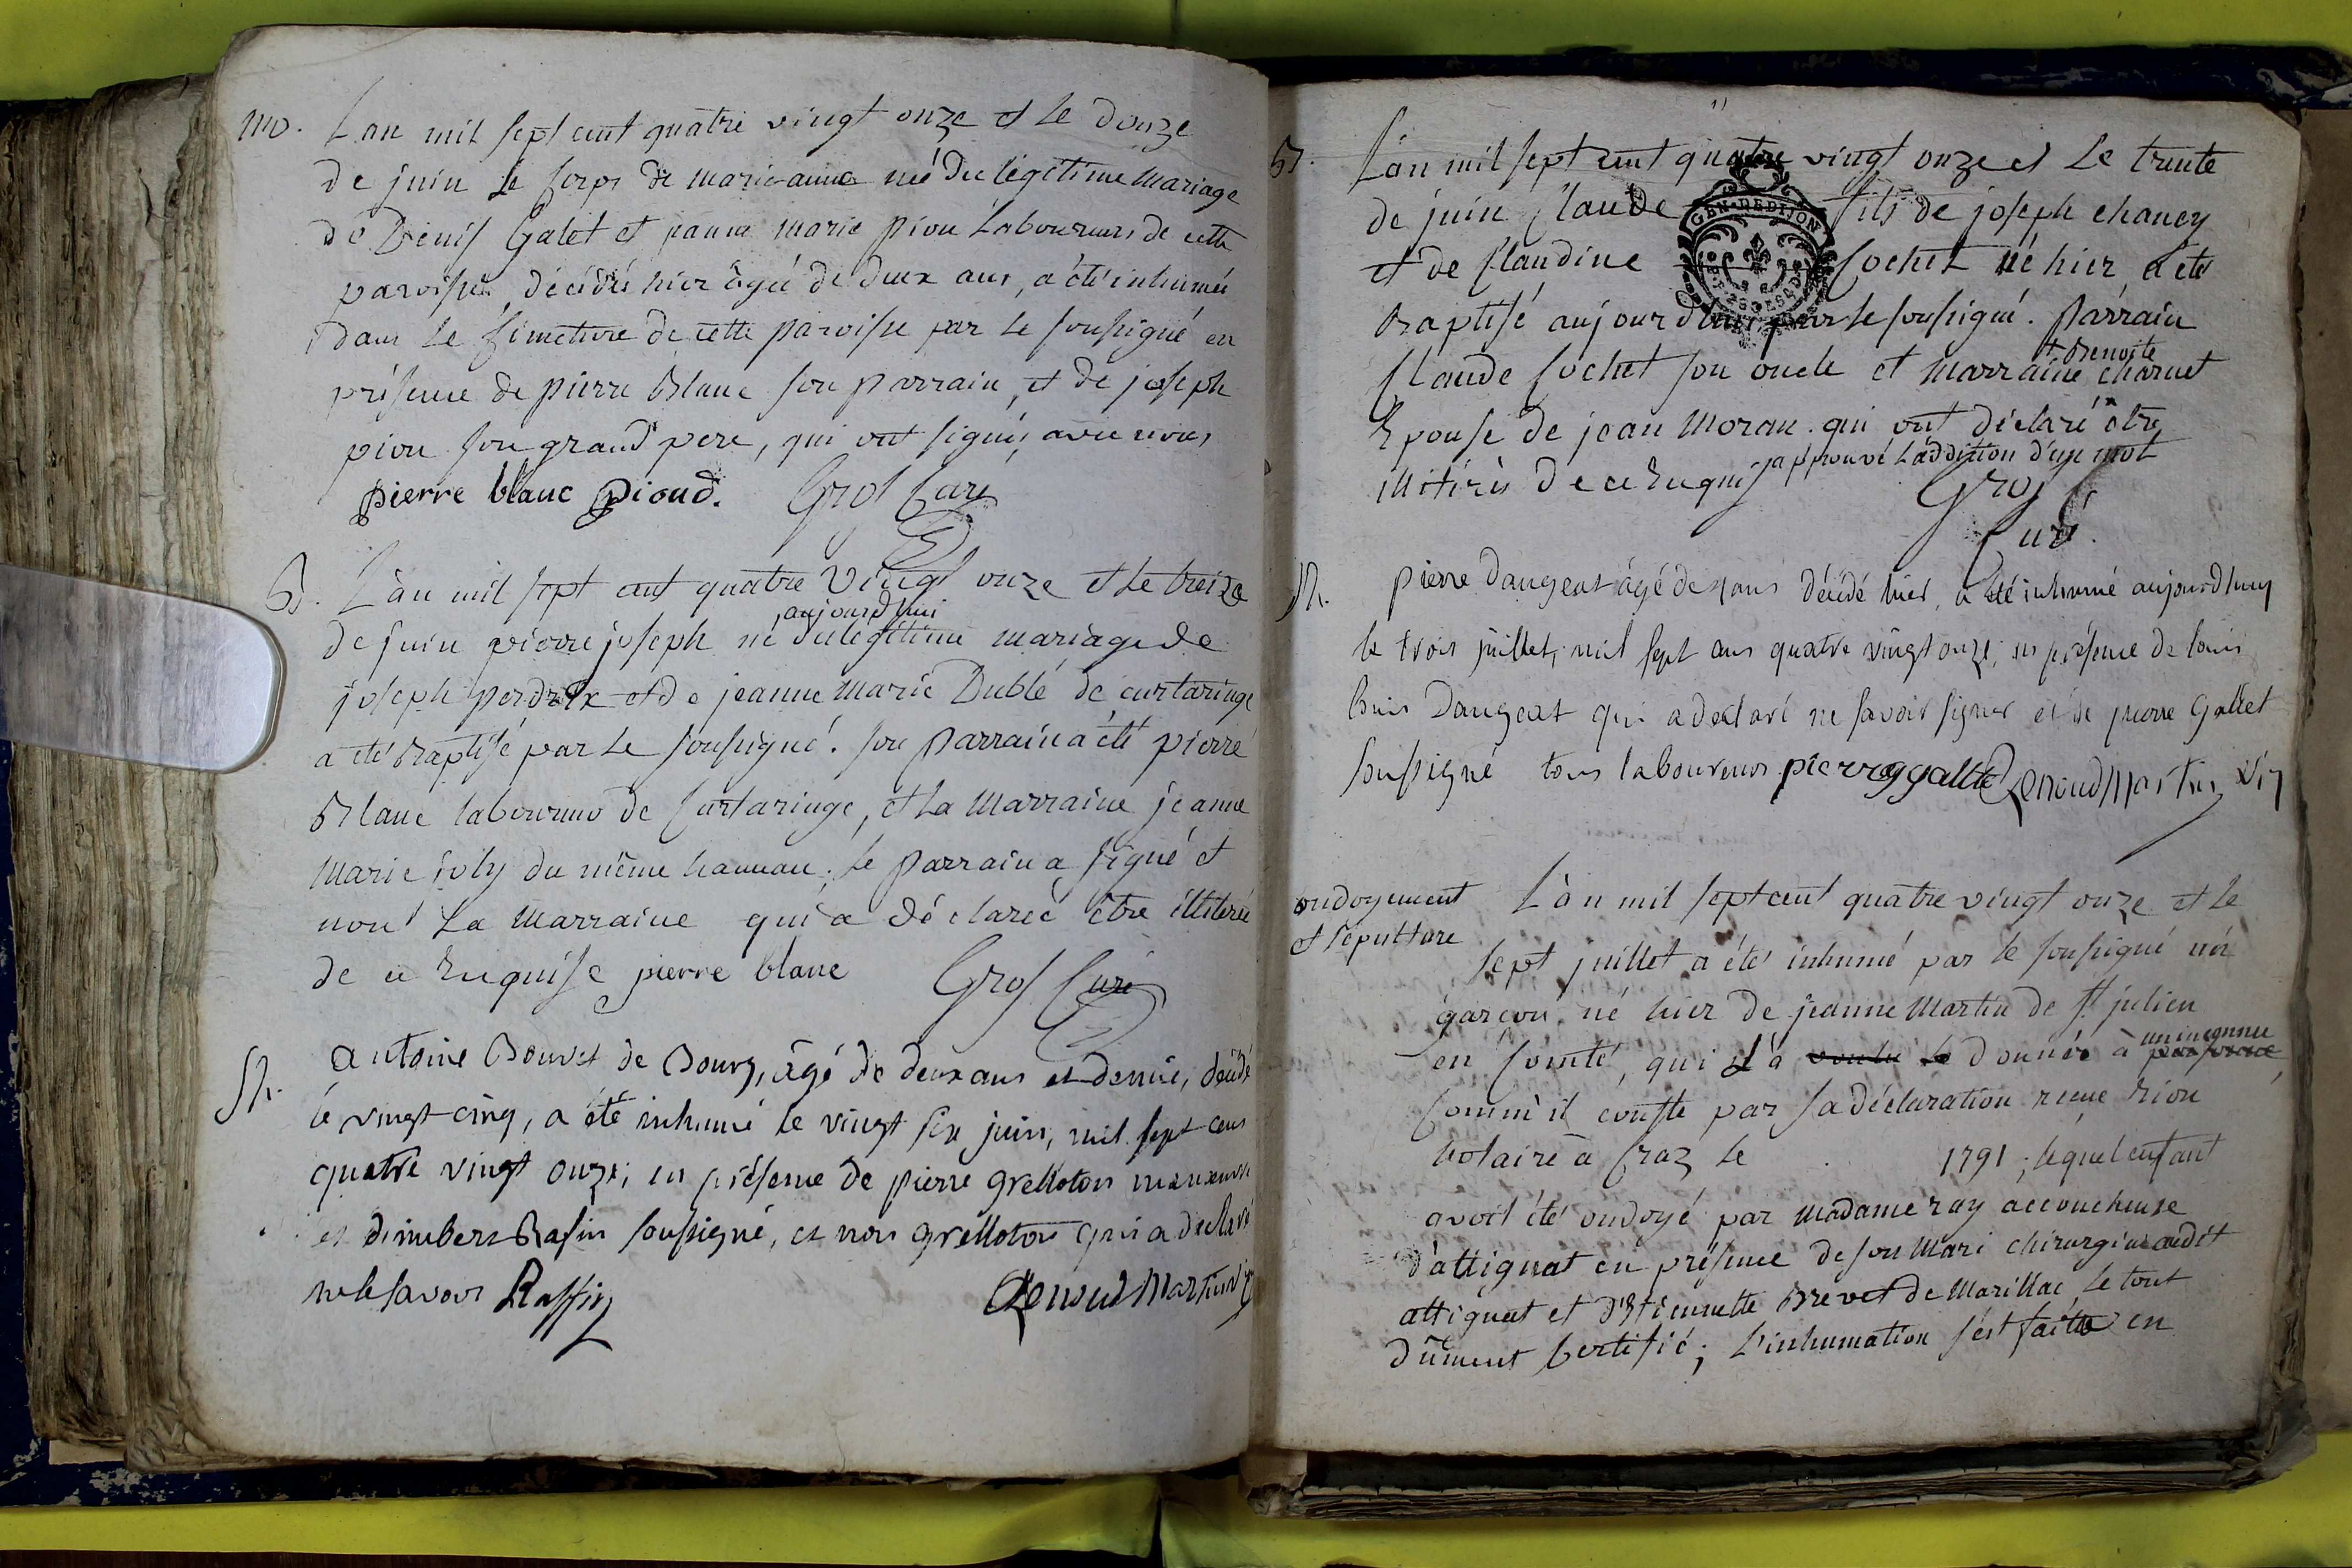 mo. L'an mil sept cent quatre vingt onze et le douze
de juin le corps de marie-anne née du légitime mariage
de Denis Galet et janne marie piou Laboureurs de cette
paroisse, décédée hier âgée de deux ans, a été inhumée
dans le simetiere de cette paroisse par le soussigné en
présence de pierre Blanc son parrain, et de joseph
piou son grand pere, qui ont signés avec nous
pierre blanc pioud. Gros Curé
B. L'an mil sept cent quatre vingt onze et le treize
aujourdhui
de juin pierre joseph né du légitime mariage de
joseph perdrix et de jeanne marie Dublé de curtaringe
a été Baptisé par le soussigné. son parrain a été pierre
Blanc laboureur de Curtaringe, et la Marraine jeanne
Marie joly du même hameau; le parrain a signé et
non la Marraine qui a déclareé être illiterée
de ce Enquise pierre blanc Gros Curé
Sh. antoine Bouvet de Bourg, âgé de deux ans et demie, décédé
le vingt-cinq, a été inhumé le vingt six juin, mil sept cens
quatre vingt onze; en présence de pierre grelloton manœuvre
et dimbert Rafin soussigné, et non grelloton qui a declaré
ne le savoir Raffin Renoud Martin Vic
11
B. L'an mil sept cent quatre vingt onze et le trente
de juin Claude fils de joseph chaney
GEN. DE DIJON
et de Claudine Cochet né hier a été
Baptisé aujourd'hui par le soussigné. Parrain
+ Benoite
Claude Cochet son oncle et Marraine charnet
Epouse de jean Moran. qui ont déclaré être
illitirés de ce Enquis japprouvé l'addition d'un mot
Gros
Curé.
Sh. pierre Dangeat âgé de ans décédé hier, a été inhumé aujourdhuy
le trois juillet, mil sept cens quatre vingt onze; en présence de louis
louis Dangeat qui a declaré ne savoir signer et de pierre Gallet
soussigné tous laboureurs pierre gallet Renoud Martin Vic
ondoyement L'an mil sept cent quatre vingt onze et le
et sépulture sept juillet a été inhumé par le soussigné un
garçon né hier de jeanne Martin de St julien
un inconnu
en Comté, qui l'a voulu le donnér à personne
Comm'il conste par sa déclaration reçue riou
notaire à Craz le 1791; lequel enfant
avoit été ondoyé par Madame ray accoucheuse
d'attignat en présence de son Mari chirurgien audit
attignat et d'Etiennette Brevet de Marillac, le tout
dûment Certifié; L'inhumation s'est faitte en